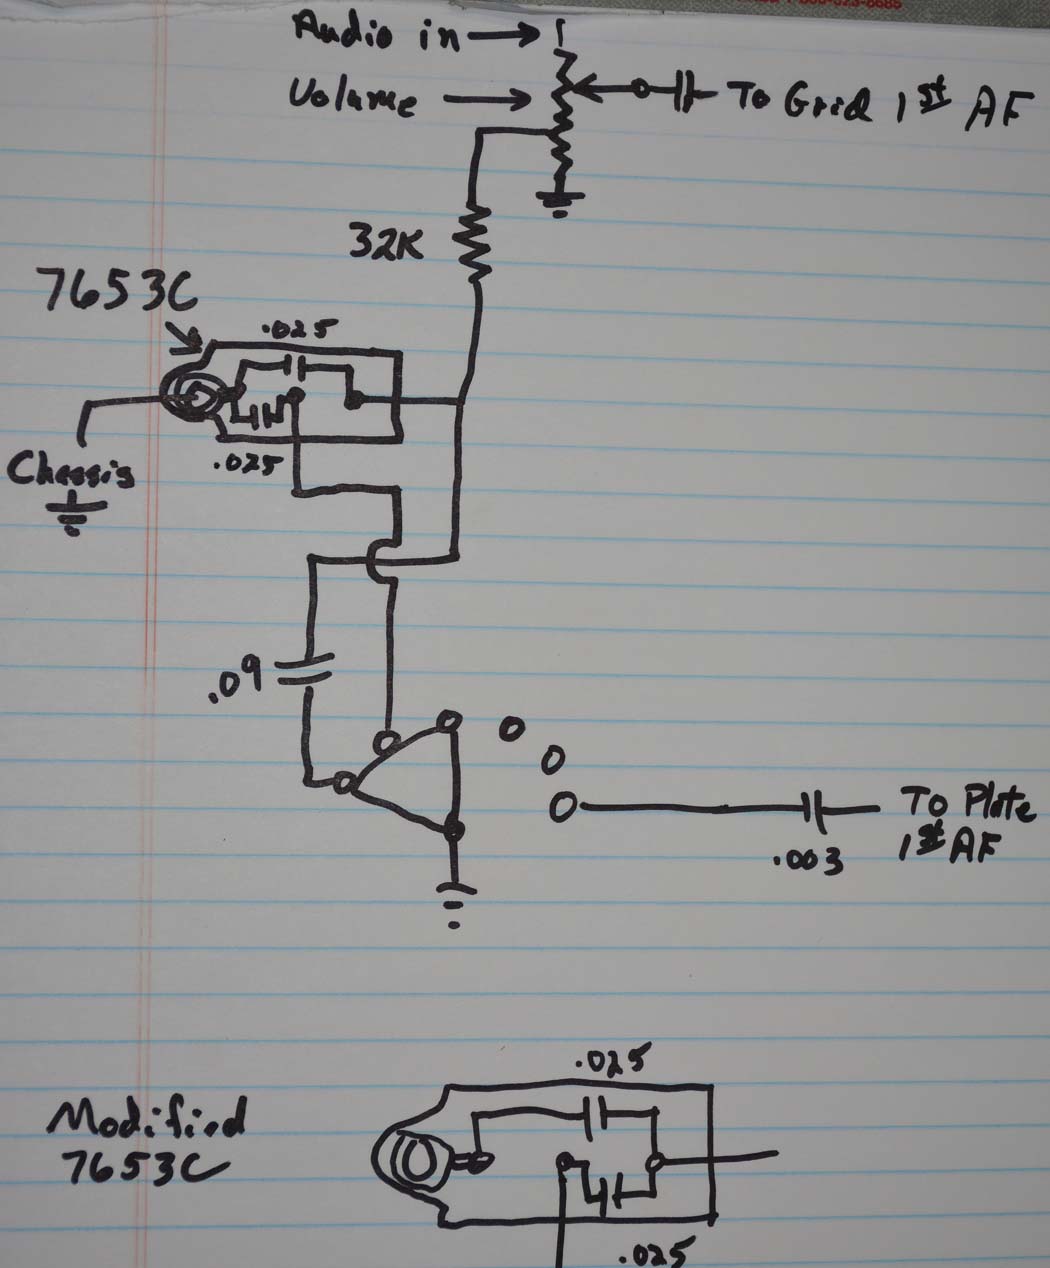 Audio in
Volume
To Grid 1st AF
32K
7653C
.025
.025
Chassis
.09
To Plate
1st AF
.003
.025
Modified
7653C
.025